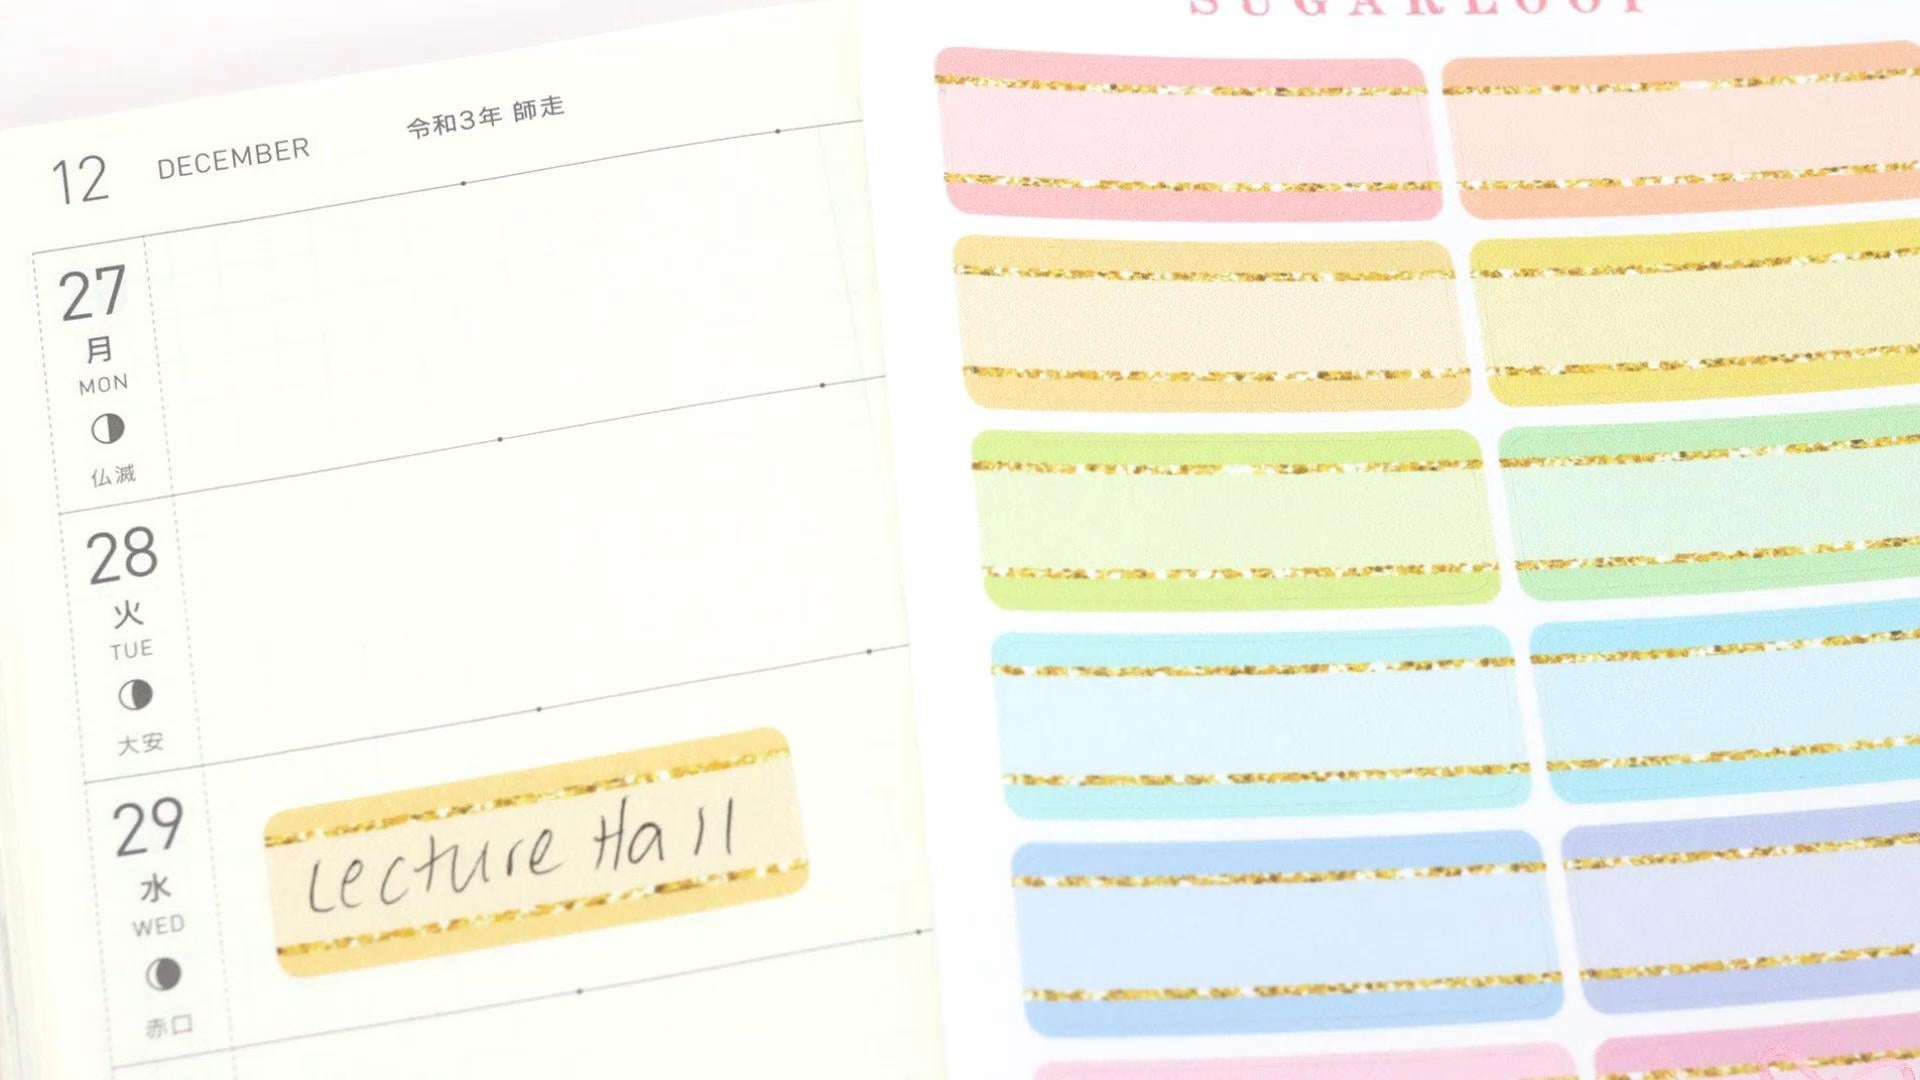 12 DECEMBER 令和3年 師走
27
月
MON
仏滅
28
火
TUE
大安
29
水
WED
赤口
Lecture Hall